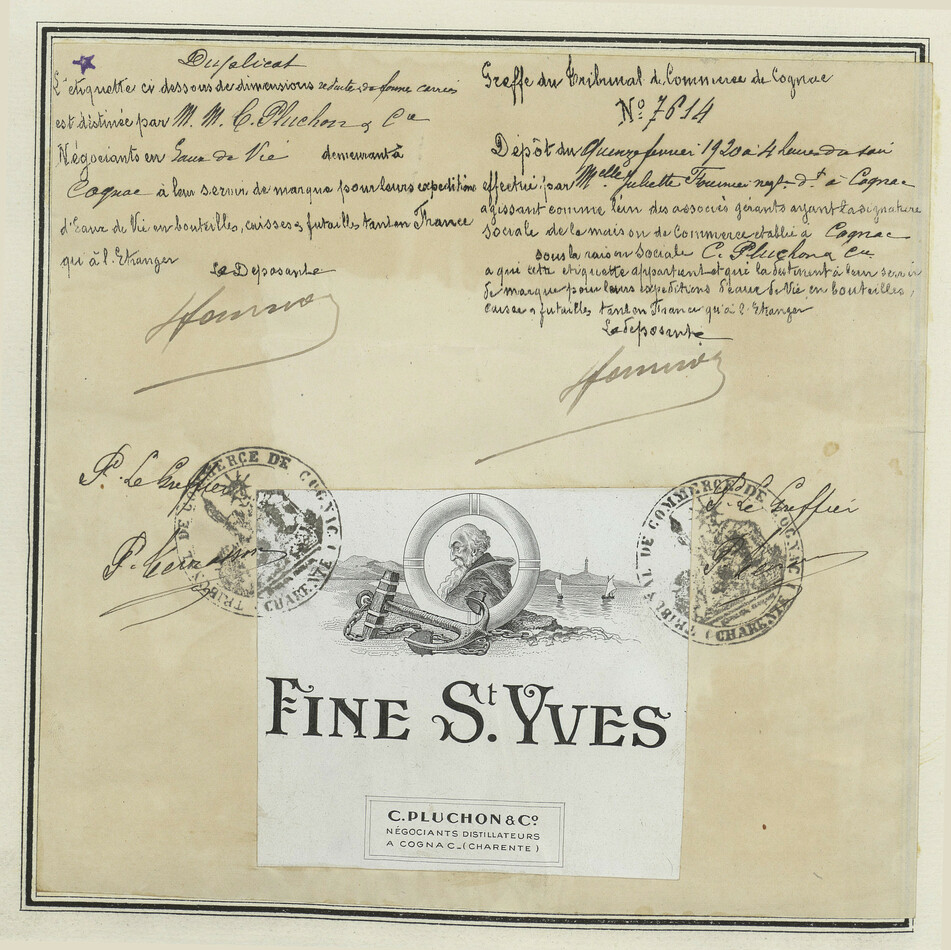 Duplicat
L'etiquette ci dessous de dimensions reduite de forme carrée
est destinée par M. M. C. Pluchon & Cie
Négociants en Eaux de Vie demeurant à
Cognac à leur servir de marque pour leurs expeditions
d'Eaux de Vie en bouteilles, caisses & futailles tant en France
qu'à l'Etranger
Le Deposante
Greffe du Tribunal de Commerce de Cognac
No 7614
Dépôt du quinze fevrier 1920 à 4 heures du soir
effectué par Melle Juliette Fournier negte dt à Cognac
agissant comme l'un des associés gérants ayant la signature
sociale de la maison de Commerce etablie à Cognac
sous la raison Sociale C. Pluchon & Cie
a qui cette etiquette appartient et qui la destinent à leur servir
de marque pour leurs expeditions d'eaux de Vie en bouteilles,
caisses & futailles tant en France qu'à l'Etranger
La deposante
P. Le Greffier
Pr le Greffier
TRIBUNAL DE COMMERCE DE COGNAC (CHARENTE)
TRIBUNAL DE COMMERCE DE COGNAC (CHARENTE)
FINE St. YVES
C. PLUCHON & Co
NÉGOCIANTS DISTILLATEURS
A COGNAC_(CHARENTE)